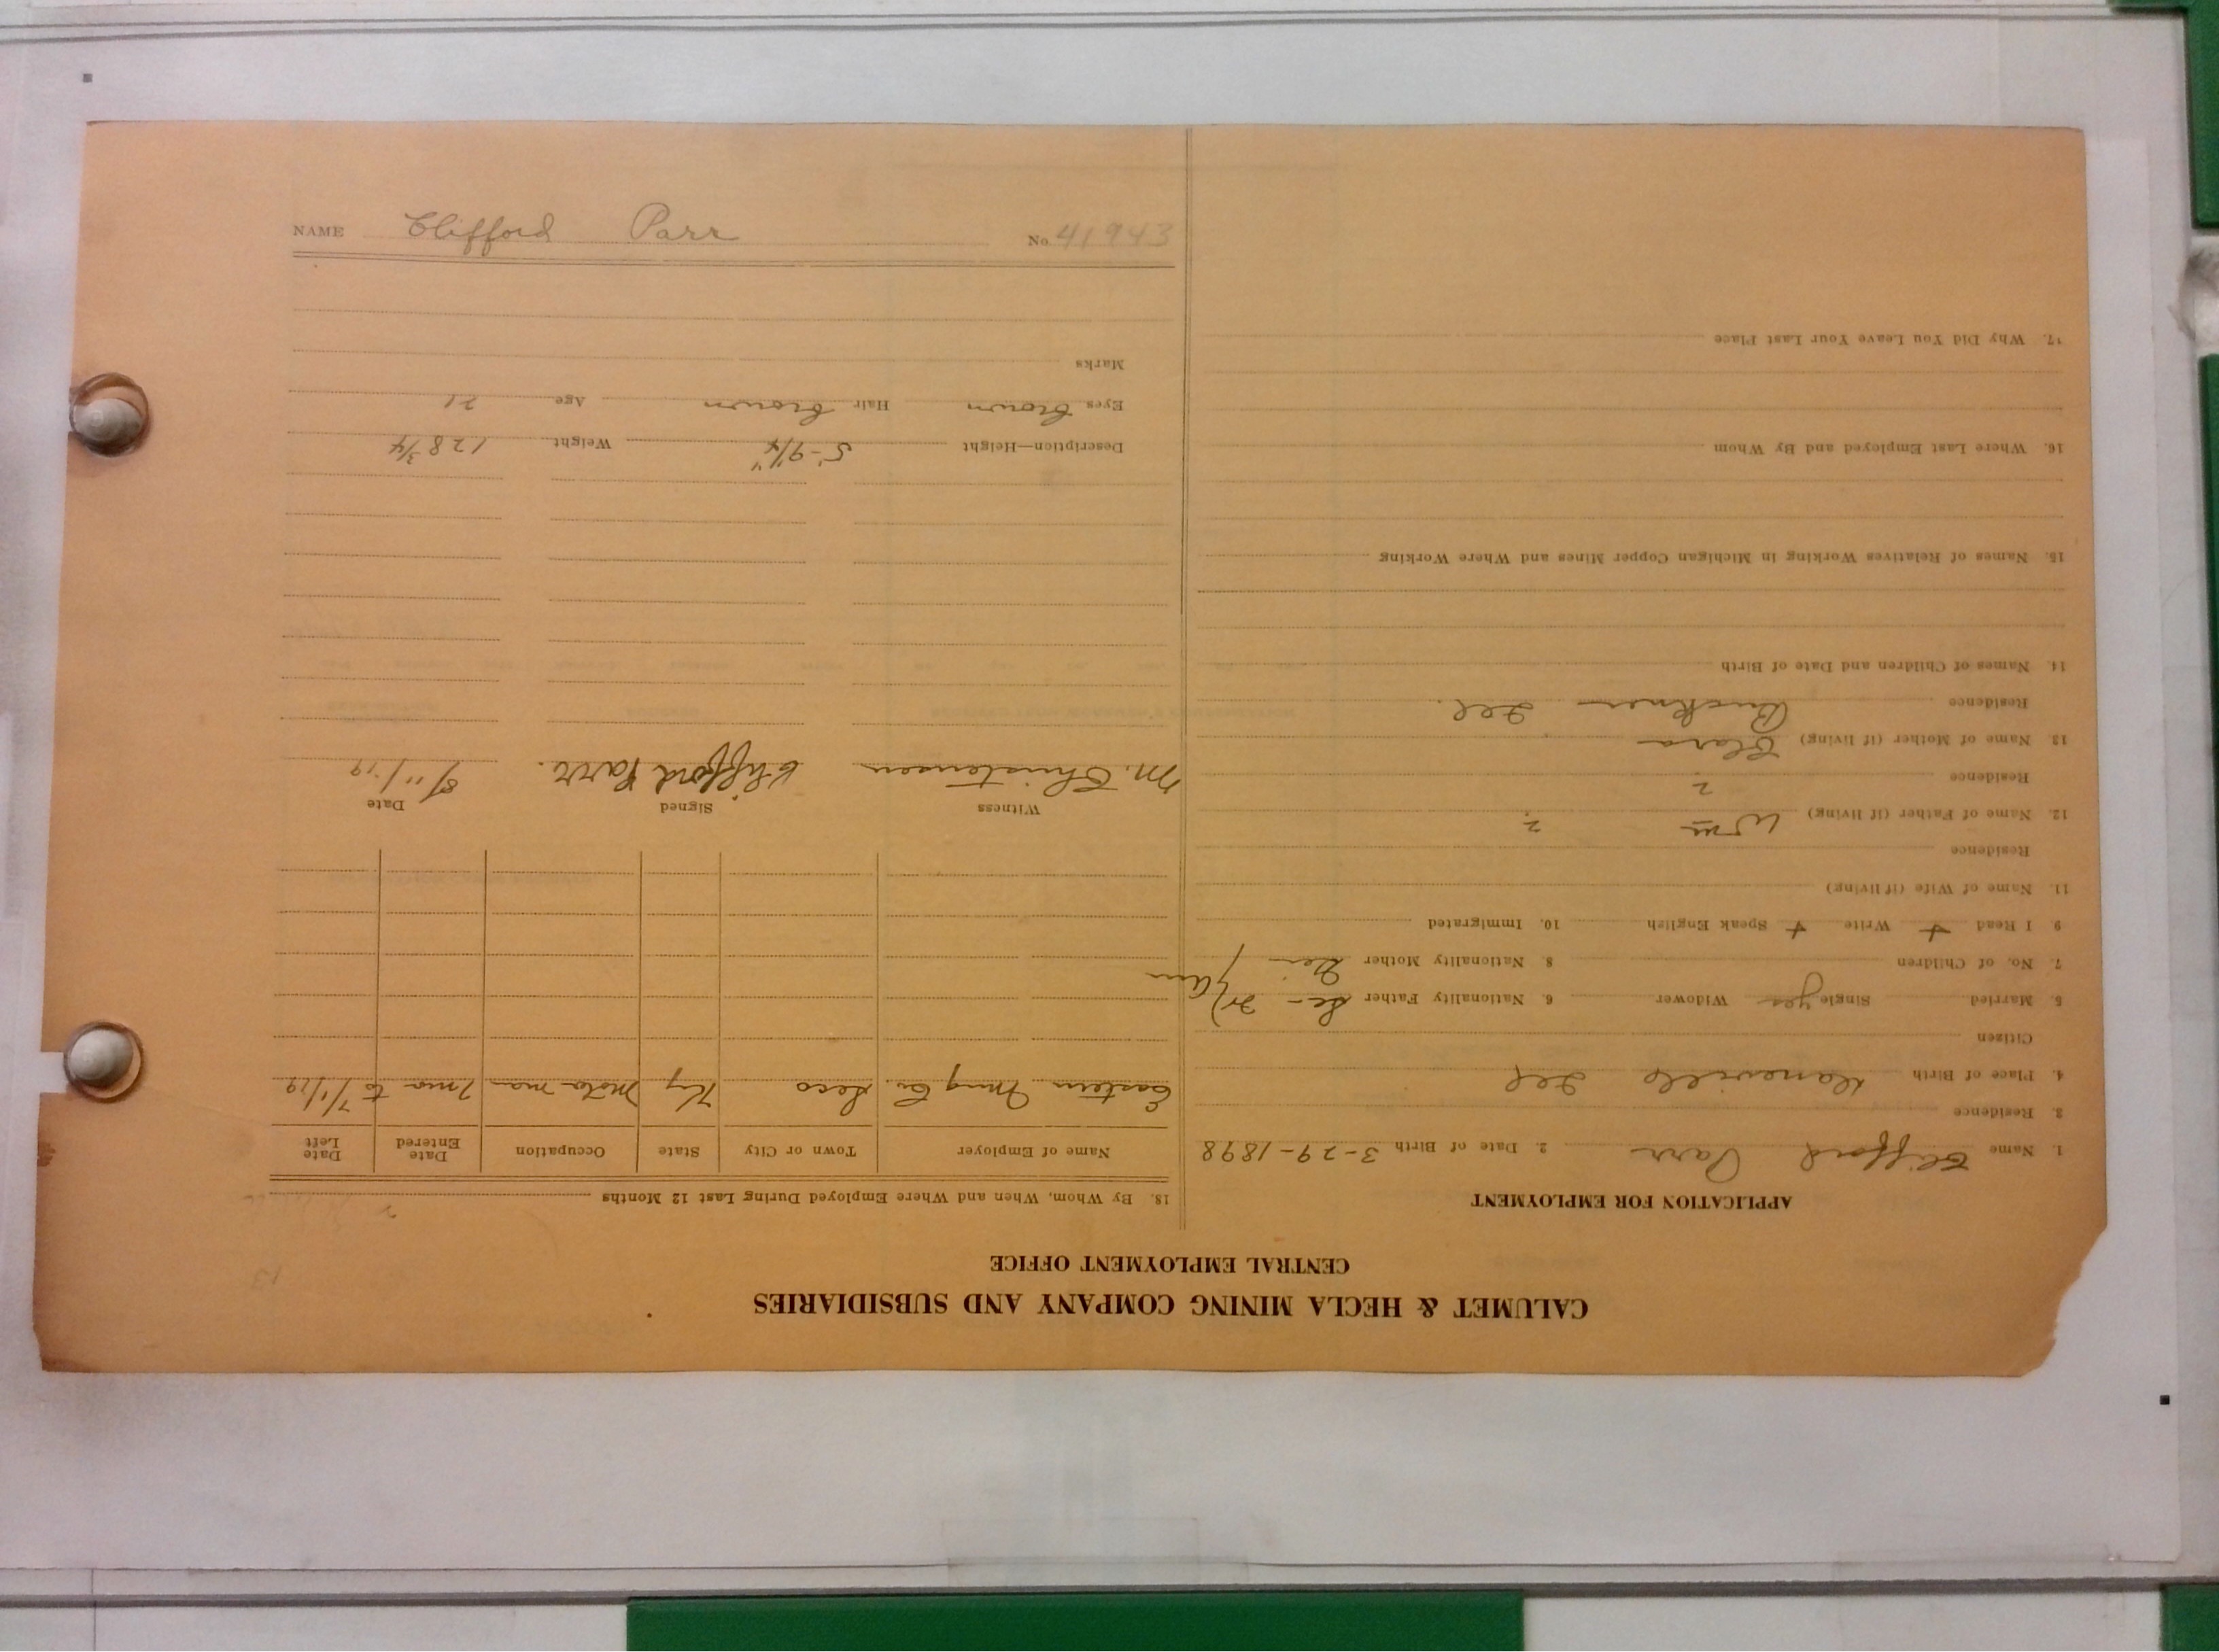 CALUMET & HECLA MINING COMPANY AND SUBSIDIARIES
CENTRAL EMPLOYMENT OFFICE
APPLICATION FOR EMPLOYMENT
1. Name Clifford Parr 2. Date of Birth 3-29-1898
3. Residence
4. Place of Birth Ill
Citizen
5. Married Single yes Widower 6. Nationality Father
7. No. of Children 8. Nationality Mother
9. I Read + Write + Speak English 10. Immigrated
11. Name of Wife (if living)
Residence
12. Name of Father (if living) Wm ?
Residence ?
13. Name of Mother (if living) Clara
Residence Buckner Ill.
14. Names of Children and Date of Birth
15. Names of Relatives Working in Michigan Copper Mines and Where Working
16. Where Last Employed and By Whom
17. Why Did You Leave Your Last Place
18. By Whom, When and Where Employed During Last 12 Months
Name of Employer Town or City State Occupation Date Entered Date Left
Eastern Mng Co. Seco Ky Motor man 7 mo to 7/1/19
Witness Signed Date
M. Christensen Clifford Parr. 8/11/19
Description—Height 5'-9 1/4" Weight 128 3/4
Eyes brown Hair brown Age 21
Marks
NAME Clifford Parr No. 41943